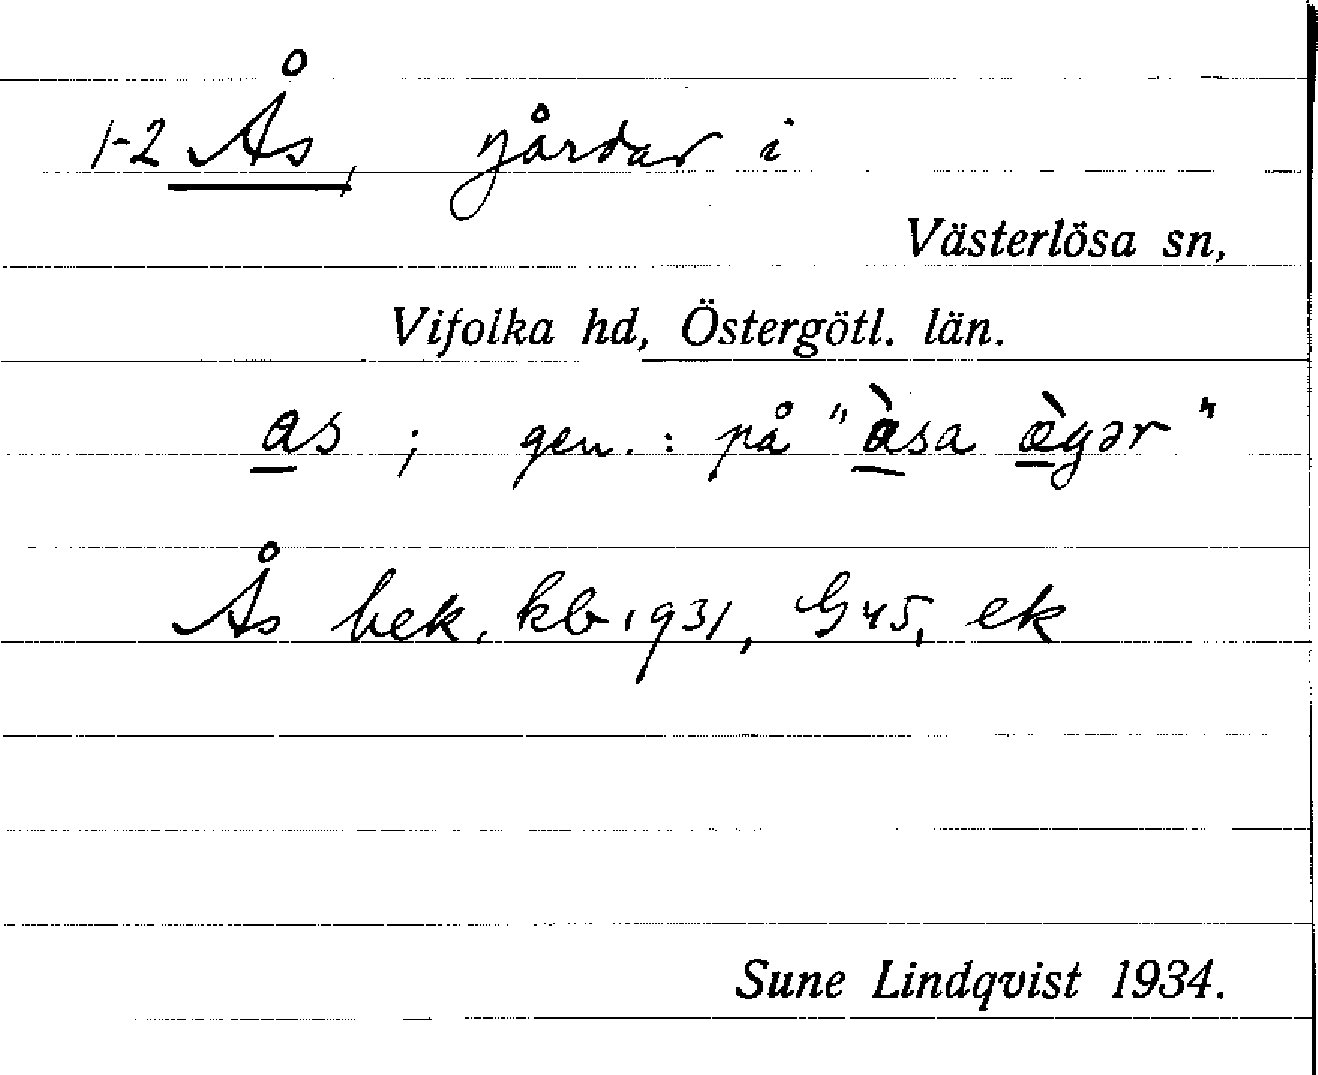 1-2 Ås, gårdar i
Västerlösa sn,
Vifolka hd, Östergötl. län.
as ; gen. : på "àsa ægər"
Ås bek. kb 1931, G45, ek
Sune Lindqvist 1934.